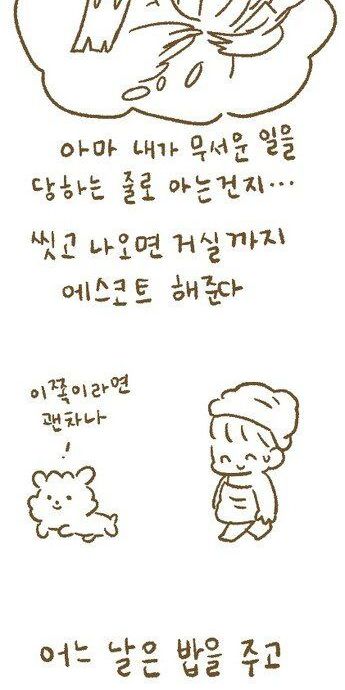 아마 내가 무서운 일을
당하는 줄로 아는건지...
씻고 나오면 거실까지
에스코트 해준다
이쪽이라면
괜차나
어느 날은 밥을 주고